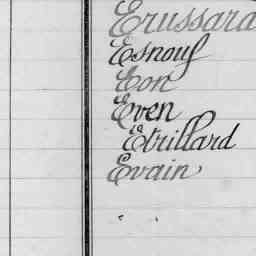 Erussard
Esnouf
Eon
Even
Etrillard
Evain